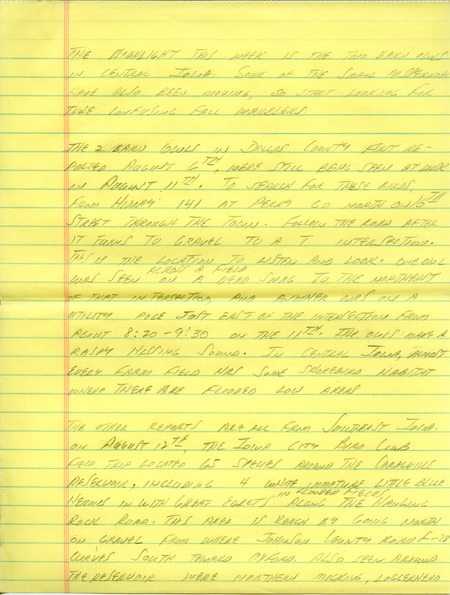 THE HIGHLIGHT THIS WEEK IS THE TWO BARN OWLS
IN CENTRAL IOWA. SOME OF THE SMALL PASSERINES
HAVE ALSO BEEN MOVING, SO START LOOKING FOR
THOSE CONFUSING FALL WARBLERS
THE 2 BARN OWLS IN DALLAS COUNTY FIRST RE-
PORTED AUGUST 6TH, WERE STILL BEING SEEN AT DUSK
ON AUGUST 11TH. TO SEARCH FOR THESE BIRDS,
FROM HIWAY 141 AT PERRY GO NORTH ON 16TH
STREET THROUGH THE TOWN. FOLLOW THE ROAD AFTER
IT TURNS TO GRAVEL TO A T INTERSECTION.
THIS IS THE LOCATION TO LISTEN AND LOOK. ONE OWL
ACROSS A FIELD
WAS SEEN ON A DEAD SNAG TO THE NORTHWEST
OF THAT INTERSECTION AND ANOTHER WAS ON A
UTILITY POLE JUST EAST OF THE INTERSECTION FROM
ABOUT 8:20-9:30 ON THE 11TH. THE OWLS MAKE A
RASPY HISSING SOUND. IN CENTRAL IOWA, ALMOST
EVERY FARM FIELD HAS SOME SHOREBIRD HABITAT
WHERE THERE ARE FLOODED LOW AREAS
THE OTHER REPORTS ARE ALL FROM SOUTHEAST IOWA.
ON AUGUST 12TH, THE IOWA CITY BIRD CLUB
FIELD TRIP LOCATED 65 SPECIES AROUND THE CORALVILLE
RESERVOIR, INCLUDING 4 WHITE IMMATURE LITTLE BLUE
IN FLOODED FIELDS
HERONS IN WITH GREAT EGRETS ALONG THE HANGING
ROCK ROAD. THIS AREA IS REACH BY GOING NORTH
ON GRAVEL FROM WHERE JOHNSON COUNTY ROAD F-28
CURVES SOUTH TOWARD OXFORD. ALSO SEEN AROUND
THE RESERVOIR WERE NORTHERN MOCKING, LOGGERHEAD